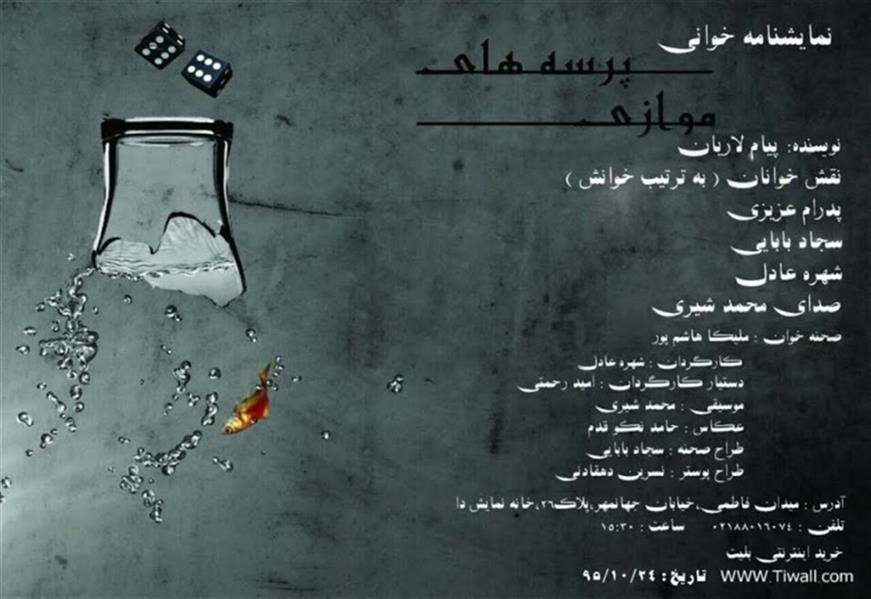 نمایشنامه خوانی
پرسه های
موازی
نویسنده: پیام لاریان
نقش خوانان ( به ترتیب خوانش )
پدرام عزیزی
سجاد بابایی
شهره عادل
صدای محمد شیری
صحنه خوان : ملیکا هاشم پور
کارگردان : شهره عادل
دستیار کارگردان : امید رحمتی
موسیقی : محمد شیری
عکاس : حامد نکو قدم
طراح صحنه : سجاد بابایی
طراح پوستر : نسرین دهقانی
آدرس : میدان فاطمی،خیابان جهانمهر،پلاک۲۶،خانه نمایش دا
تلفن : ۰۲۱۸۸۰۱۶۰۷۴ ساعت : ۱۵:۳۰
خرید اینترنتی بلیت
WWW.Tiwall.com تاریخ : ۹۵/۱۰/۲۴